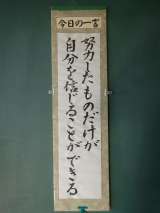 今日の一言
努力したものだけが
自分を信じることができる